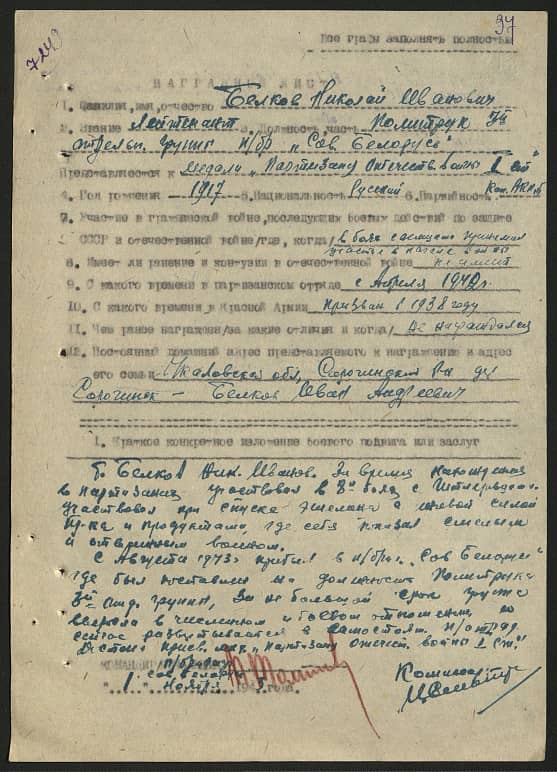 7243
37
Все графы заполнять полностью
НАГРАДНОЙ ЛИСТ
1. Фамилия, имя, отчество Белков Николай Иванович
2. Звание Лейтенант 3. Должность, часть Политрук 3й
отдельн. группы п/бр "Сов Белорусь"
Представляется к медали "Партизану Отечеств. войны 1 ст"
4. Год рождения 1917 5. Национальность Русский 6. Партийность Кан.
7. Участие в гражданской войне, последующих боевых действий по защите
СССР и отечественной войне/где, когда/ в боях с немцами принимал
участие в начале войны
8. Имеет ли ранение и контузии в отечественной войне не имеет
9. С какого времени в партизанском отряде с Апреля 1942г.
10. С какого времени в Красной Армии призван в 1938 году
11. Чем ранее награжден/за какие отличия и когда/ Не награждался
12. Постоянный домашний адрес представляемого к награждению и адрес
его семьи Чкаловская обл, Сорочинский р-н
Сорочинск - Белков Иван Андреевич
1. Краткое конкретное изложение боевого подвига или заслуг
Т. Белков Ник. Иванов. За время нахождения
в партизанах участвовал в 8и боях с
участвовал при спуске эшелона с живой силой
пр-ка и продуктами, где себя показал смелым
и отважным воином.
С Августа 1943г прибыл в п/бр. "Сов Белорусь"
где был поставлен на должность Политрука
3й отд. группы, За не большой срок группа
выросла в численном и боевом отношении, и
сейчас развертывается в самостоят. п/отряд.
Достоин присв. мед. "партизану отечеств. войны 1 ст."
КОМАНДИР п/бригады
"Сов Белорусь"
"1" Ноября 194 года.
Комиссар